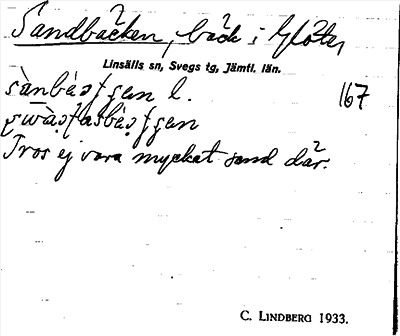 Sandbäcken, bäck i Glöte,
Linsälls sn, Svegs tg, Jämtl. län.
l.
167
Tros ej vara mycket sand där.
C. LINDBERG 1933.